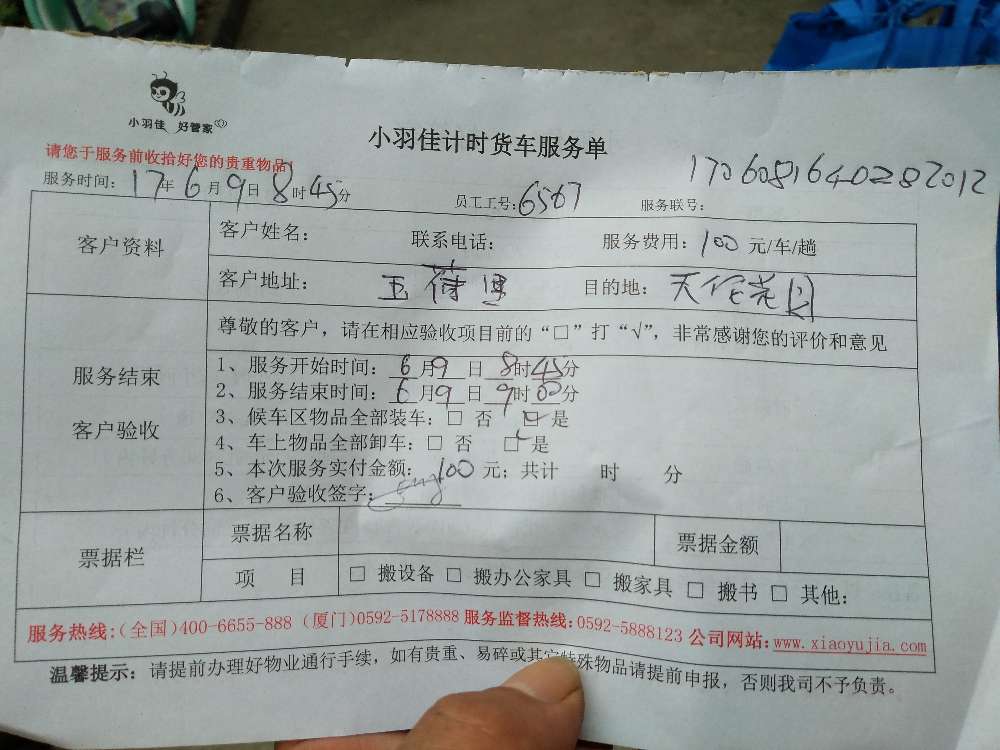 小羽佳 好管家
小羽佳计时货车服务单
请您于服务前收拾好您的贵重物品!
1706081640282012
服务时间: 17年6月9日8时45分 员工工号: 6567 服务联号:
客户资料
客户姓名: 联系电话: 服务费用: 100 元/车/趟
客户地址: 目的地: 天
服务结束
客户验收
尊敬的客户，请在相应验收项目前的“□”打“√”，非常感谢您的评价和意见
1、服务开始时间: 6月9日8时45分
2、服务结束时间: 6月9日9时00分
3、候车区物品全部装车: □ 否 ☑ 是
4、车上物品全部卸车: □ 否 ☑ 是
5、本次服务实付金额: 100元; 共计 时 分
6、客户验收签字:
票据栏
票据名称 票据金额
项 目 □ 搬设备 □ 搬办公家具 □ 搬家具 □ 搬书 □ 其他:
服务热线:(全国)400-6655-888 (厦门)0592-5178888 服务监督热线:0592-5888123 公司网站:www.xiaoyujia.com
温馨提示: 请提前办理好物业通行手续，如有贵重、易碎或其它特殊物品请提前申报，否则我司不予负责。